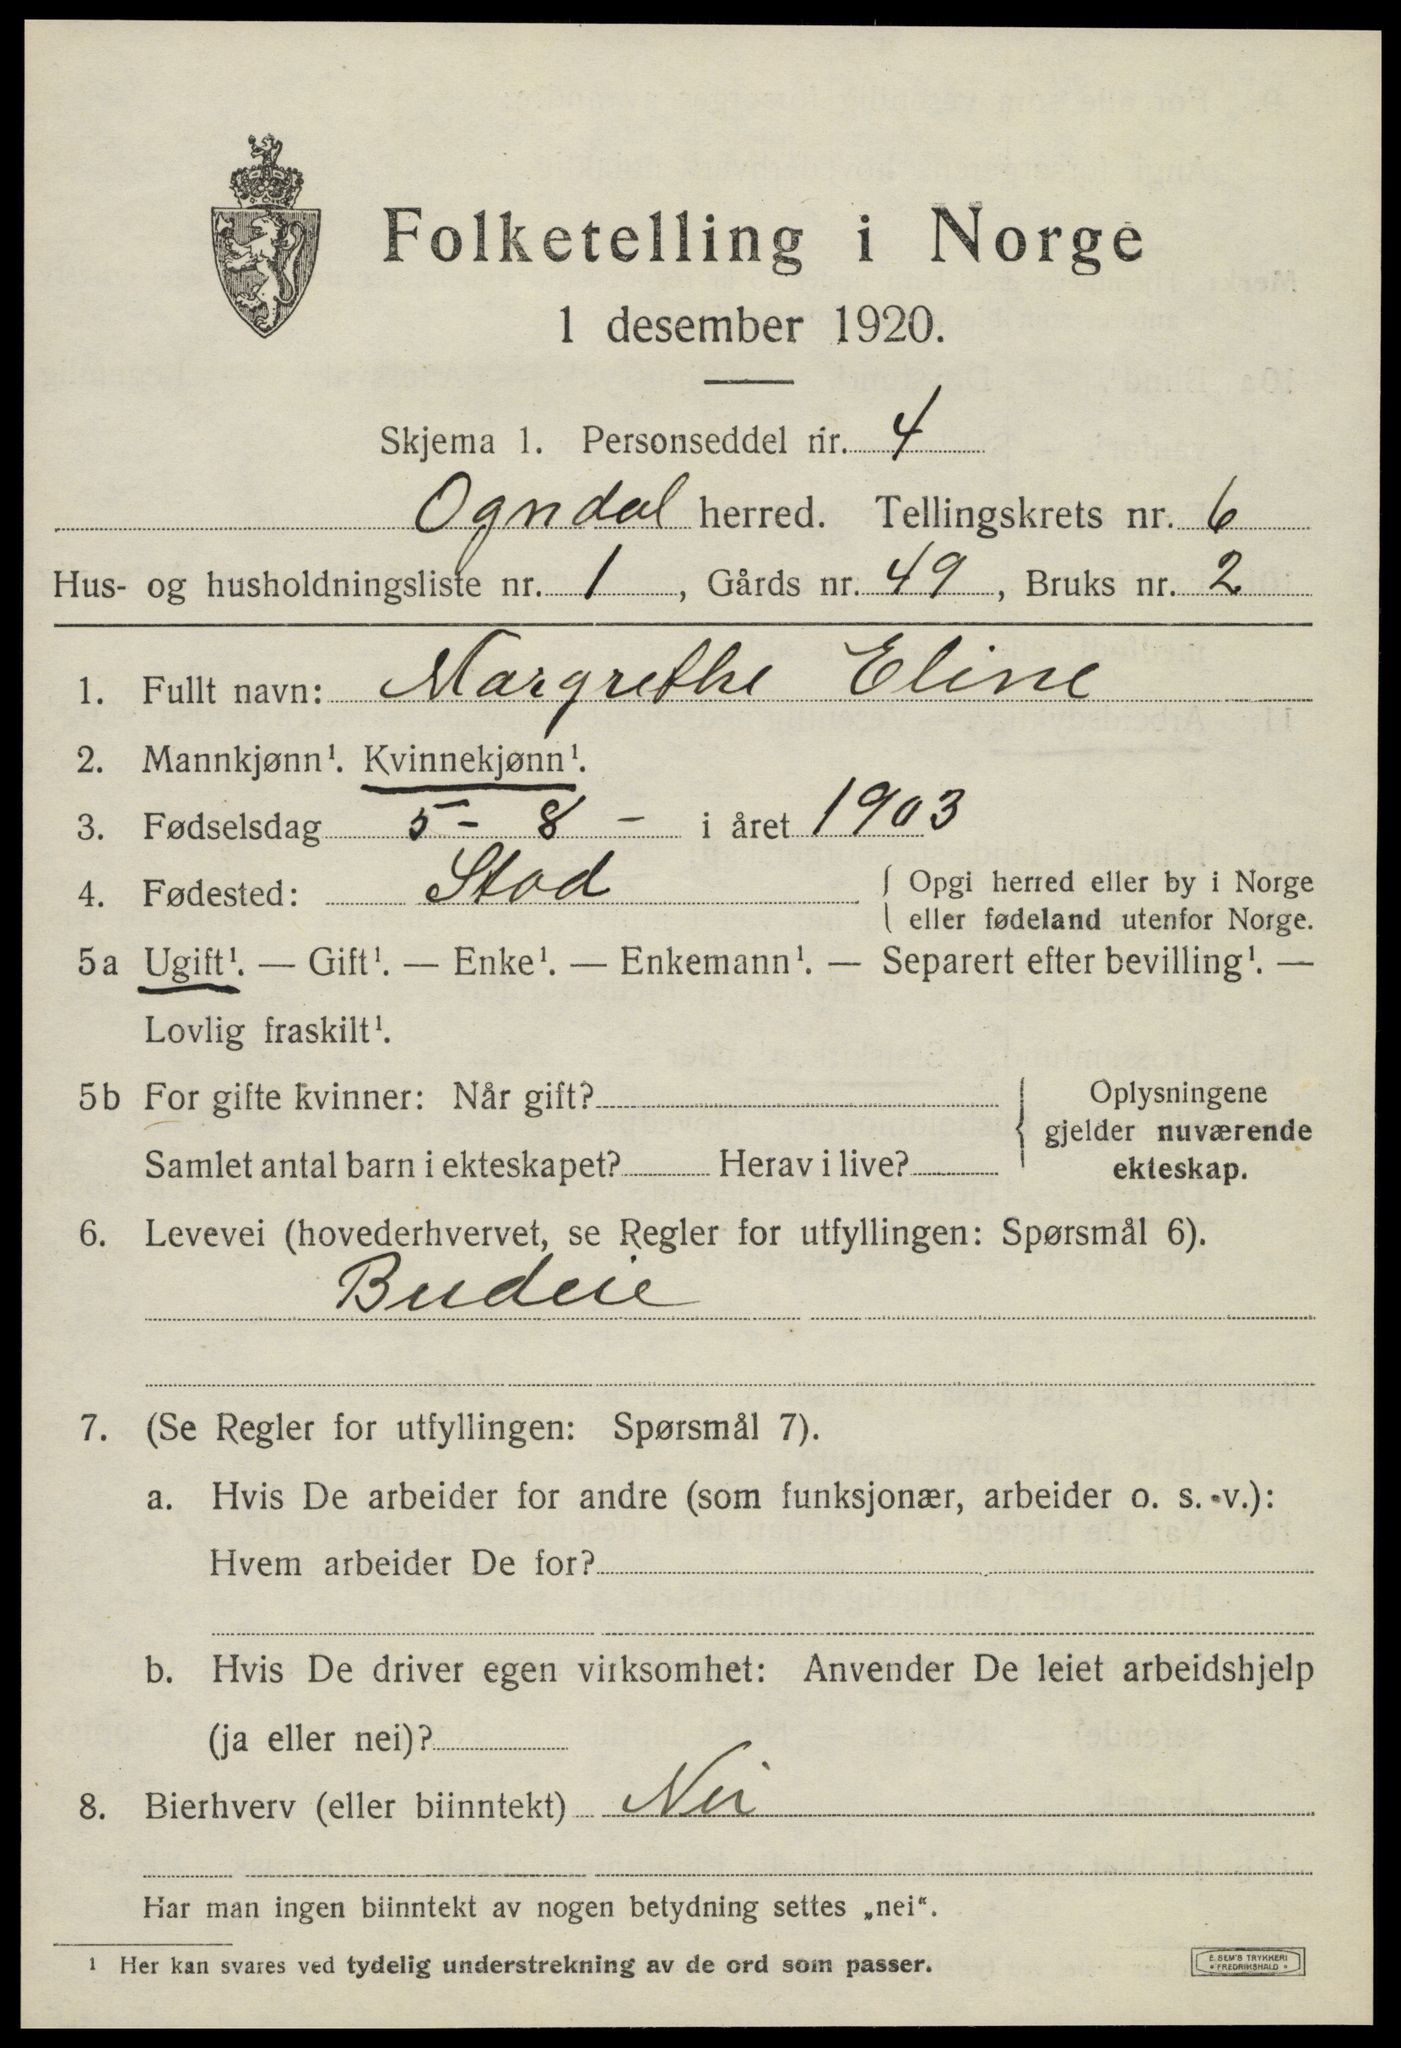 Folketelling i Norge
1 desember 1920.
Skjema 1. Personseddel nr. 4
Ogndal herred. Tellingskrets nr. 6
Hus- og husholdningsliste nr. 1, Gårds nr. 49, Bruks nr. 2
1. Fullt navn: Margrethe Eline
2. Mannkjønn¹. Kvinnekjønn¹.
3. Fødselsdag 5 - 8 - i året 1903
4. Fødested: Stod { Opgi herred eller by i Norge
eller fødeland utenfor Norge.
5a Ugift¹. — Gift¹. — Enke¹. — Enkemann¹. — Separert efter bevilling¹. —
Lovlig fraskilt¹.
5b For gifte kvinner: Når gift? { Oplysningene
gjelder nuværende
Samlet antal barn i ekteskapet? Herav i live? ekteskap.
6. Levevei (hovederhvervet, se Regler for utfyllingen: Spørsmål 6).
Budeie
7. (Se Regler for utfyllingen: Spørsmål 7).
a. Hvis De arbeider for andre (som funksjonær, arbeider o. s. v.):
Hvem arbeider De for?
b. Hvis De driver egen virksomhet: Anvender De leiet arbeidshjelp
(ja eller nei)?
8. Bierhverv (eller biinntekt) Nei
Har man ingen biinntekt av nogen betydning settes „nei“.
¹ Her kan svares ved tydelig understrekning av de ord som passer.
E. SEM'S TRYKKERI
• FREDRIKSHALD •